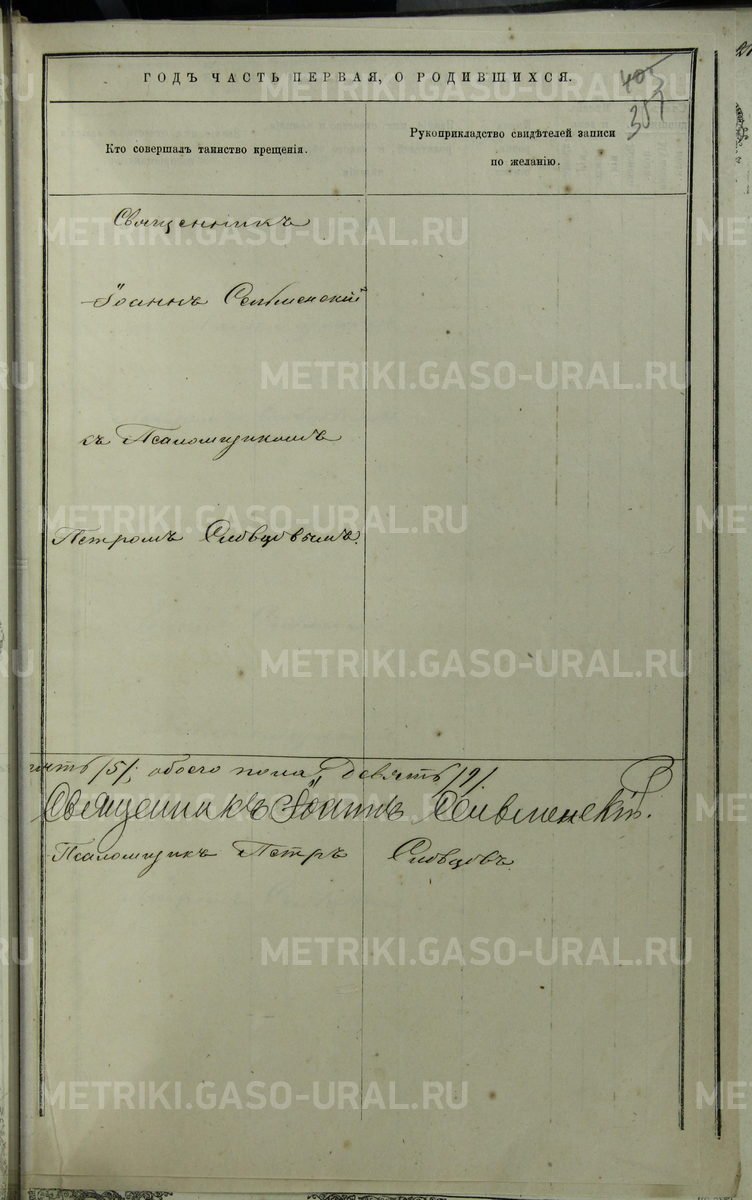 ГОДЪ ЧАСТЬ ПЕРВАЯ, О РОДИВШИХСЯ.
405
357
Кто совершалъ таинство крещенія.
Рукоприкладство свидѣтелей записи
по желанію.
Священникъ
Іоаннъ Сельменскій
съ Псаломщикомъ
Петромъ Словцовымъ.
/5/; обоего пола, девять /9/
Священникъ Іоаннъ Сельменскій.
Псаломщикъ Петръ Словцовъ.
METRIKI.GASO-URAL.RU